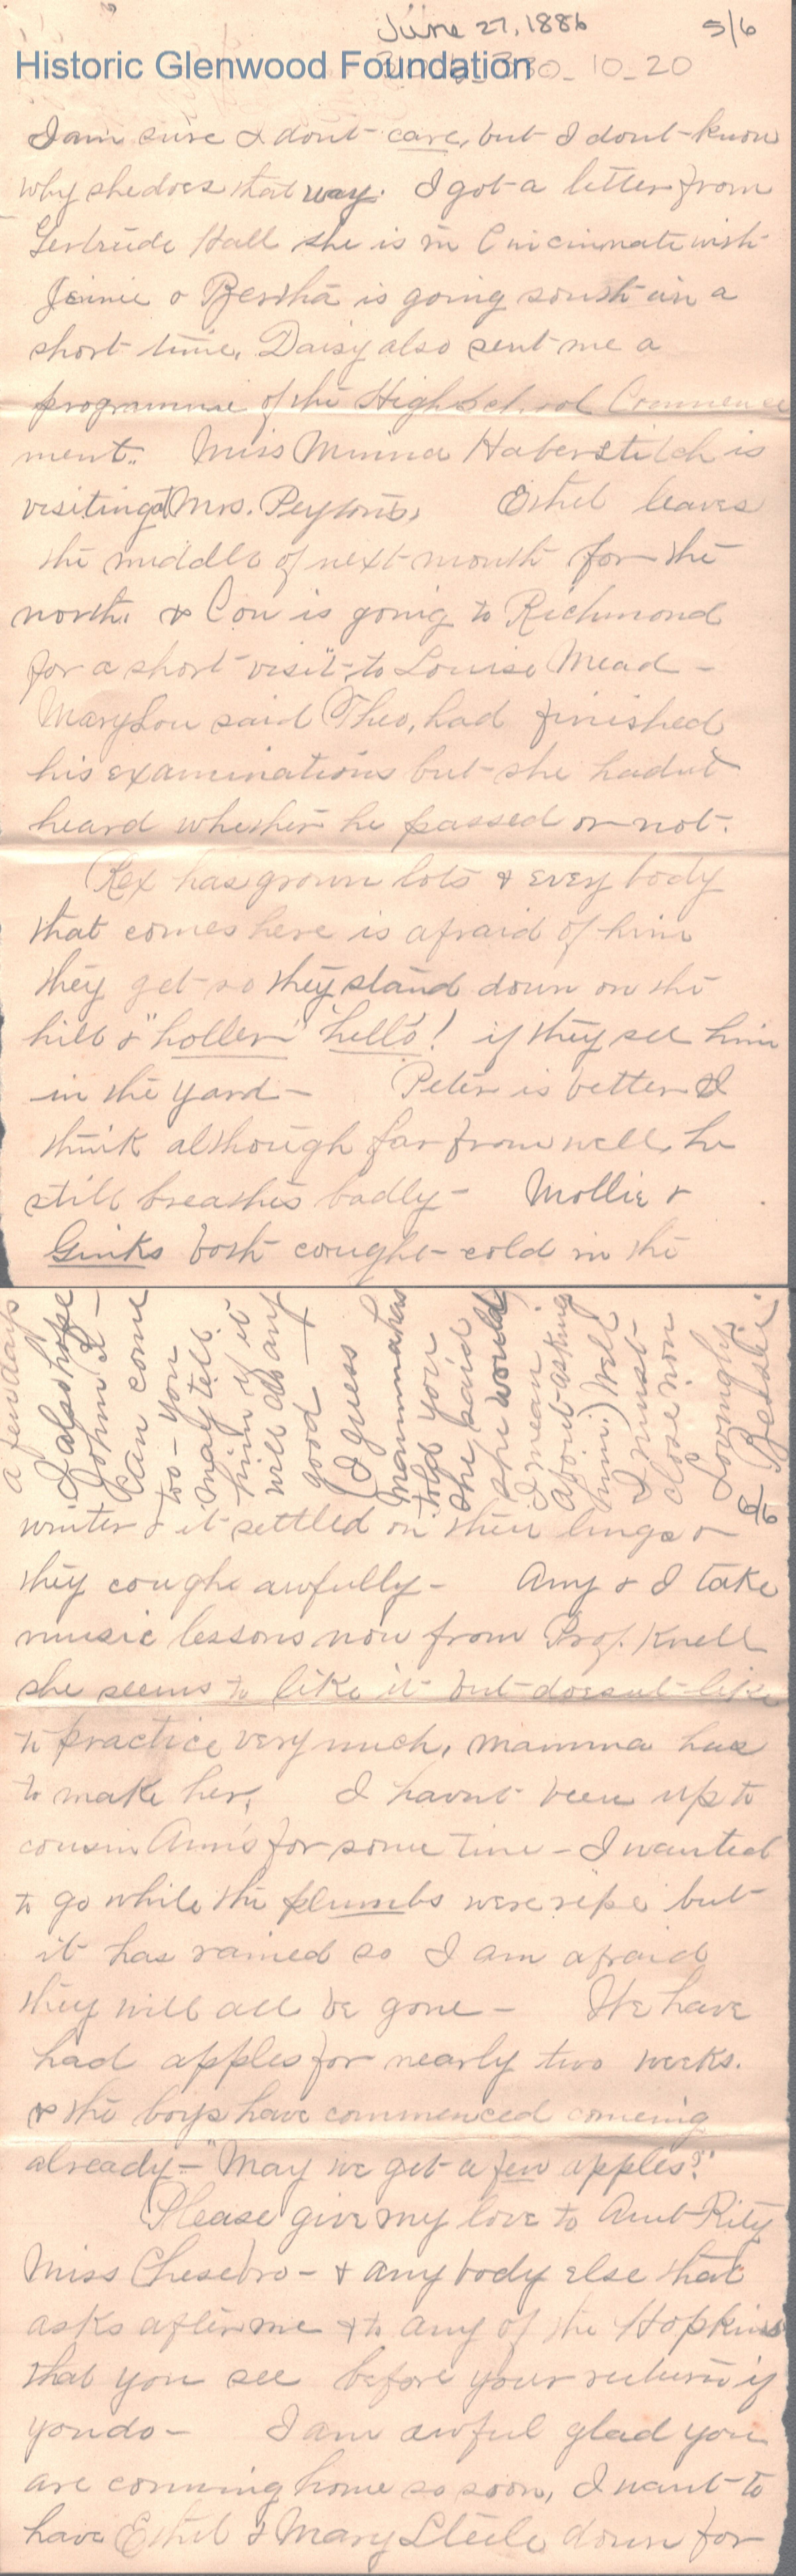 June 27, 1886
5/6
Historic Glenwood Foundation
10_20
I am sure I dont care, but I dont know
why she does that way. I got a letter from
Gertrude Hall she is in Cincinnate with
Jennie & Bertha is going south in a
short time, Daisy also sent me a
programme of the High School Commence
ment. Miss Minna Haberstitch is
visiting at Mrs. Peyton's, Ethel leaves
the middle of next month for the
north. & Con is going to Richmond
for a short visit, to Louise Mead -
Mary Lou said Theo, had finished
his examinations but she hadn't
heard whether he passed or not.
Rex has grown lots & every body
that comes here is afraid of him
they get so they stand down on the
hill & "holler" "hello"! if they see him
in the yard - Peter is better I
think although far from well, he
still breathes badly - Mollie &
Ginks both cought cold in the
winter & it settled on their lungs &
they coughe awfully - Amy & I take
music lessons now from Prof. Knell
she seems to like it but doesnt like
to practice very much, mamma has
to make her, I havnt been up to
cousin Ann's for some time - I wanted
to go while the plumbs were ripe but
it has rained so I am afraid
they will all be gone - We have
had apples for nearly two weeks.
& the boys have commenced comeing
already - "May we get a few apples?"
Please give my love to Aunt Kity
Miss Chesebro - & any body else that
asks after me & to any of the Hopkins
that you see before your return if
you do - I am awful glad you
are comming home so soon, I want to
have Ethel & Mary Steele down for
a few days
I also hope
John S -
can come
too - you
may tell
him if it
will do any
good -
(I guess
mamma has
told you
she said
she would
I mean
about asking
him.) Well
I must
close now
Lovingly.
Bessie.
6/6